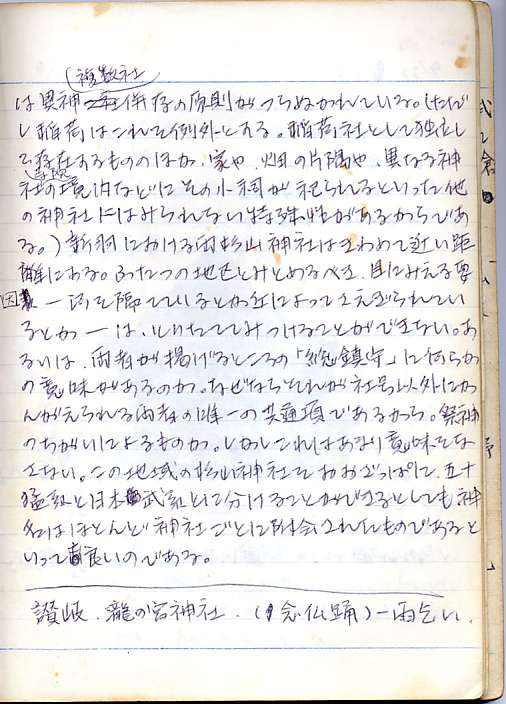 複数社
は異神併存の原則がつらぬかれている。(ただ
し稲荷はこれを例外とする。稲荷社として独立し
て存在するもののほか、家や、畑の片隅や、異なる神
社の境内などにその小祠が祀られるといった他
の神社にはみられない特殊性があるからであ
る。)新羽における両杉山神社はきわめて近い距
離にある。ふたつの地をとみとめるべき、目にみえる要
因 ― 河を隔てているとか丘によってさえぎられてい
るとか ― は、とりたててみつけることができない。あ
るいは、両者が掲げるところの「総鎮守」に何らか
の意味があるのか。なぜならそれが社号以外にか
んがえられる両者の唯一の共通項であるから。祭神
のちがいによるものか。しかしこれはあまり意味をな
さない。この地域の杉山神社をおおざっぱに、五十
猛系と日本武系とに分けることができるとしても神
名はほとんど神社ごとに附会されたものであると
いって良いのである。
讃岐.瀧の宮神社.(念仏踊)―雨乞い.